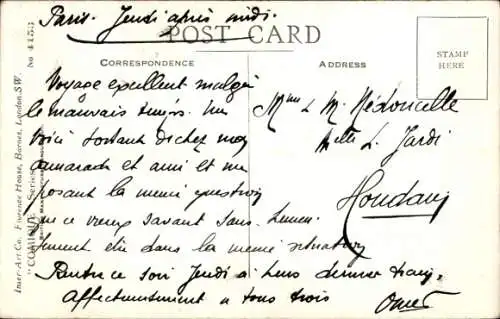 Paris. Jeudi après midi.
POST CARD
CORRESPONDENCE
ADDRESS
STAMP
HERE
No 4153
Inter-Art Co. Florence House, Barnes, London, S.W.
"COMIQUE" Series
Voyage excellent malgré
le mauvais temps. Me
voici sortant de chez mon
camarade et ami et me
posant la même question
que ce vieux savant sans
été dans la même situation
Rentre ce soir Jeudi à
Affectueusement à tous trois
Mme L. M. Médoucelle
L. Jardi
Houdan